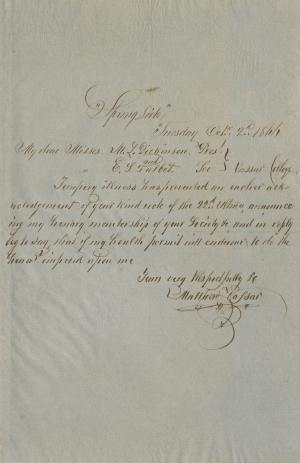 "Spring Side"
Tuesday Oct. 2nd 1866
My dear Misses. M. L. Dickinson, Pres.
and
E. L. Talbot. Sec Vassar College,
Tempory illness has prevented an earlier ack-
nowledgement of your kind note of the 22nd Ultimo announc
ing my honorary membership of your Society & and in reply
beg to say, that if my health permit will endeavor to do the
honor imposed upon me
Yours very Respectfully &c
Matthew Vassar